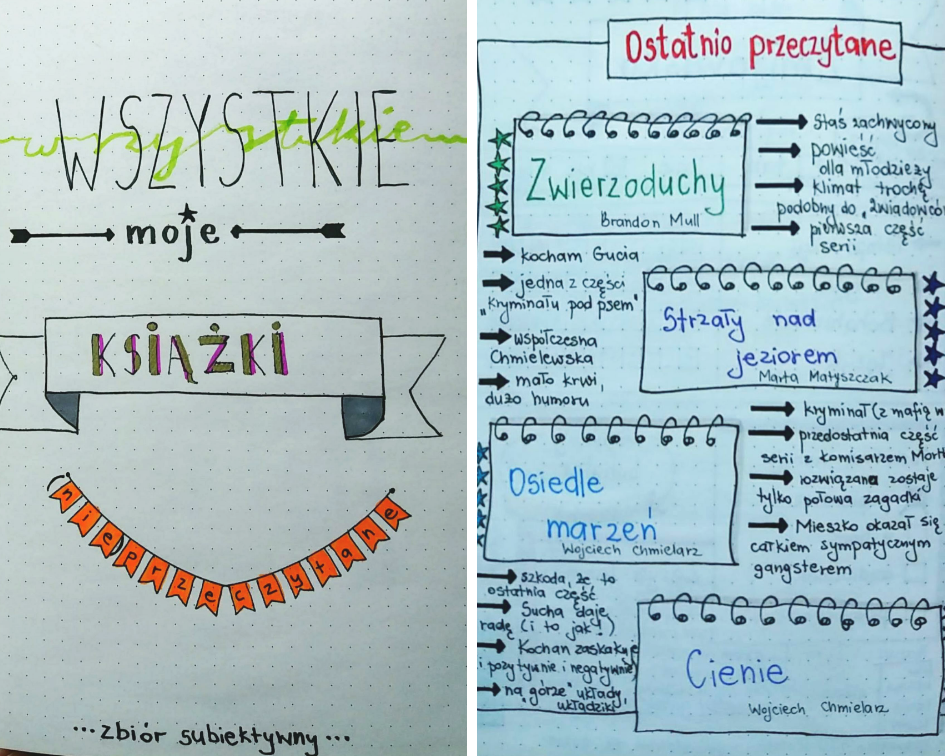 WSZYSTKIE
moje
KSIĄŻKI
(nie)przeczytane
...zbiór subiektywny...
Ostatnio przeczytane
Zwierzoduchy
Brandon Mull
Staś zachwycony
powieść
dla młodzieży
klimat trochę
podobny do "Zwiadowców
pierwsza część
serii
kocham Gucia
jedna z części
"Kryminału pod psem"
współczesna
Chmielewska
mało krwi,
dużo humoru
Strzały nad
jeziorem
Marta Matyszczak
kryminał (z mafią w
przedostatnia część
serii z komisarzem Mort
rozwiązana zostaje
tylko połowa zagadki
Mieszko okazał się
całkiem sympatycznym
gangsterem
Osiedle
marzeń
Wojciech Chmielarz
szkoda, że to
ostatnia część
Sucha daje
radę (i to jak!)
Kochan zaskakuje
i pozytywnie i negatywnie
na "górze" układy,
układziki
Cienie
Wojciech Chmielarz